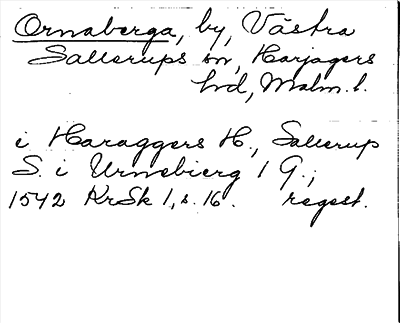 Ornaberga, by, Västra
Sallerups sn, Harjagers
hd, Malm. l.
i Haraggers H., Sallerup
S. i Urnebierg 1 G.,
1542 KrSk 1, s. 16. regest.